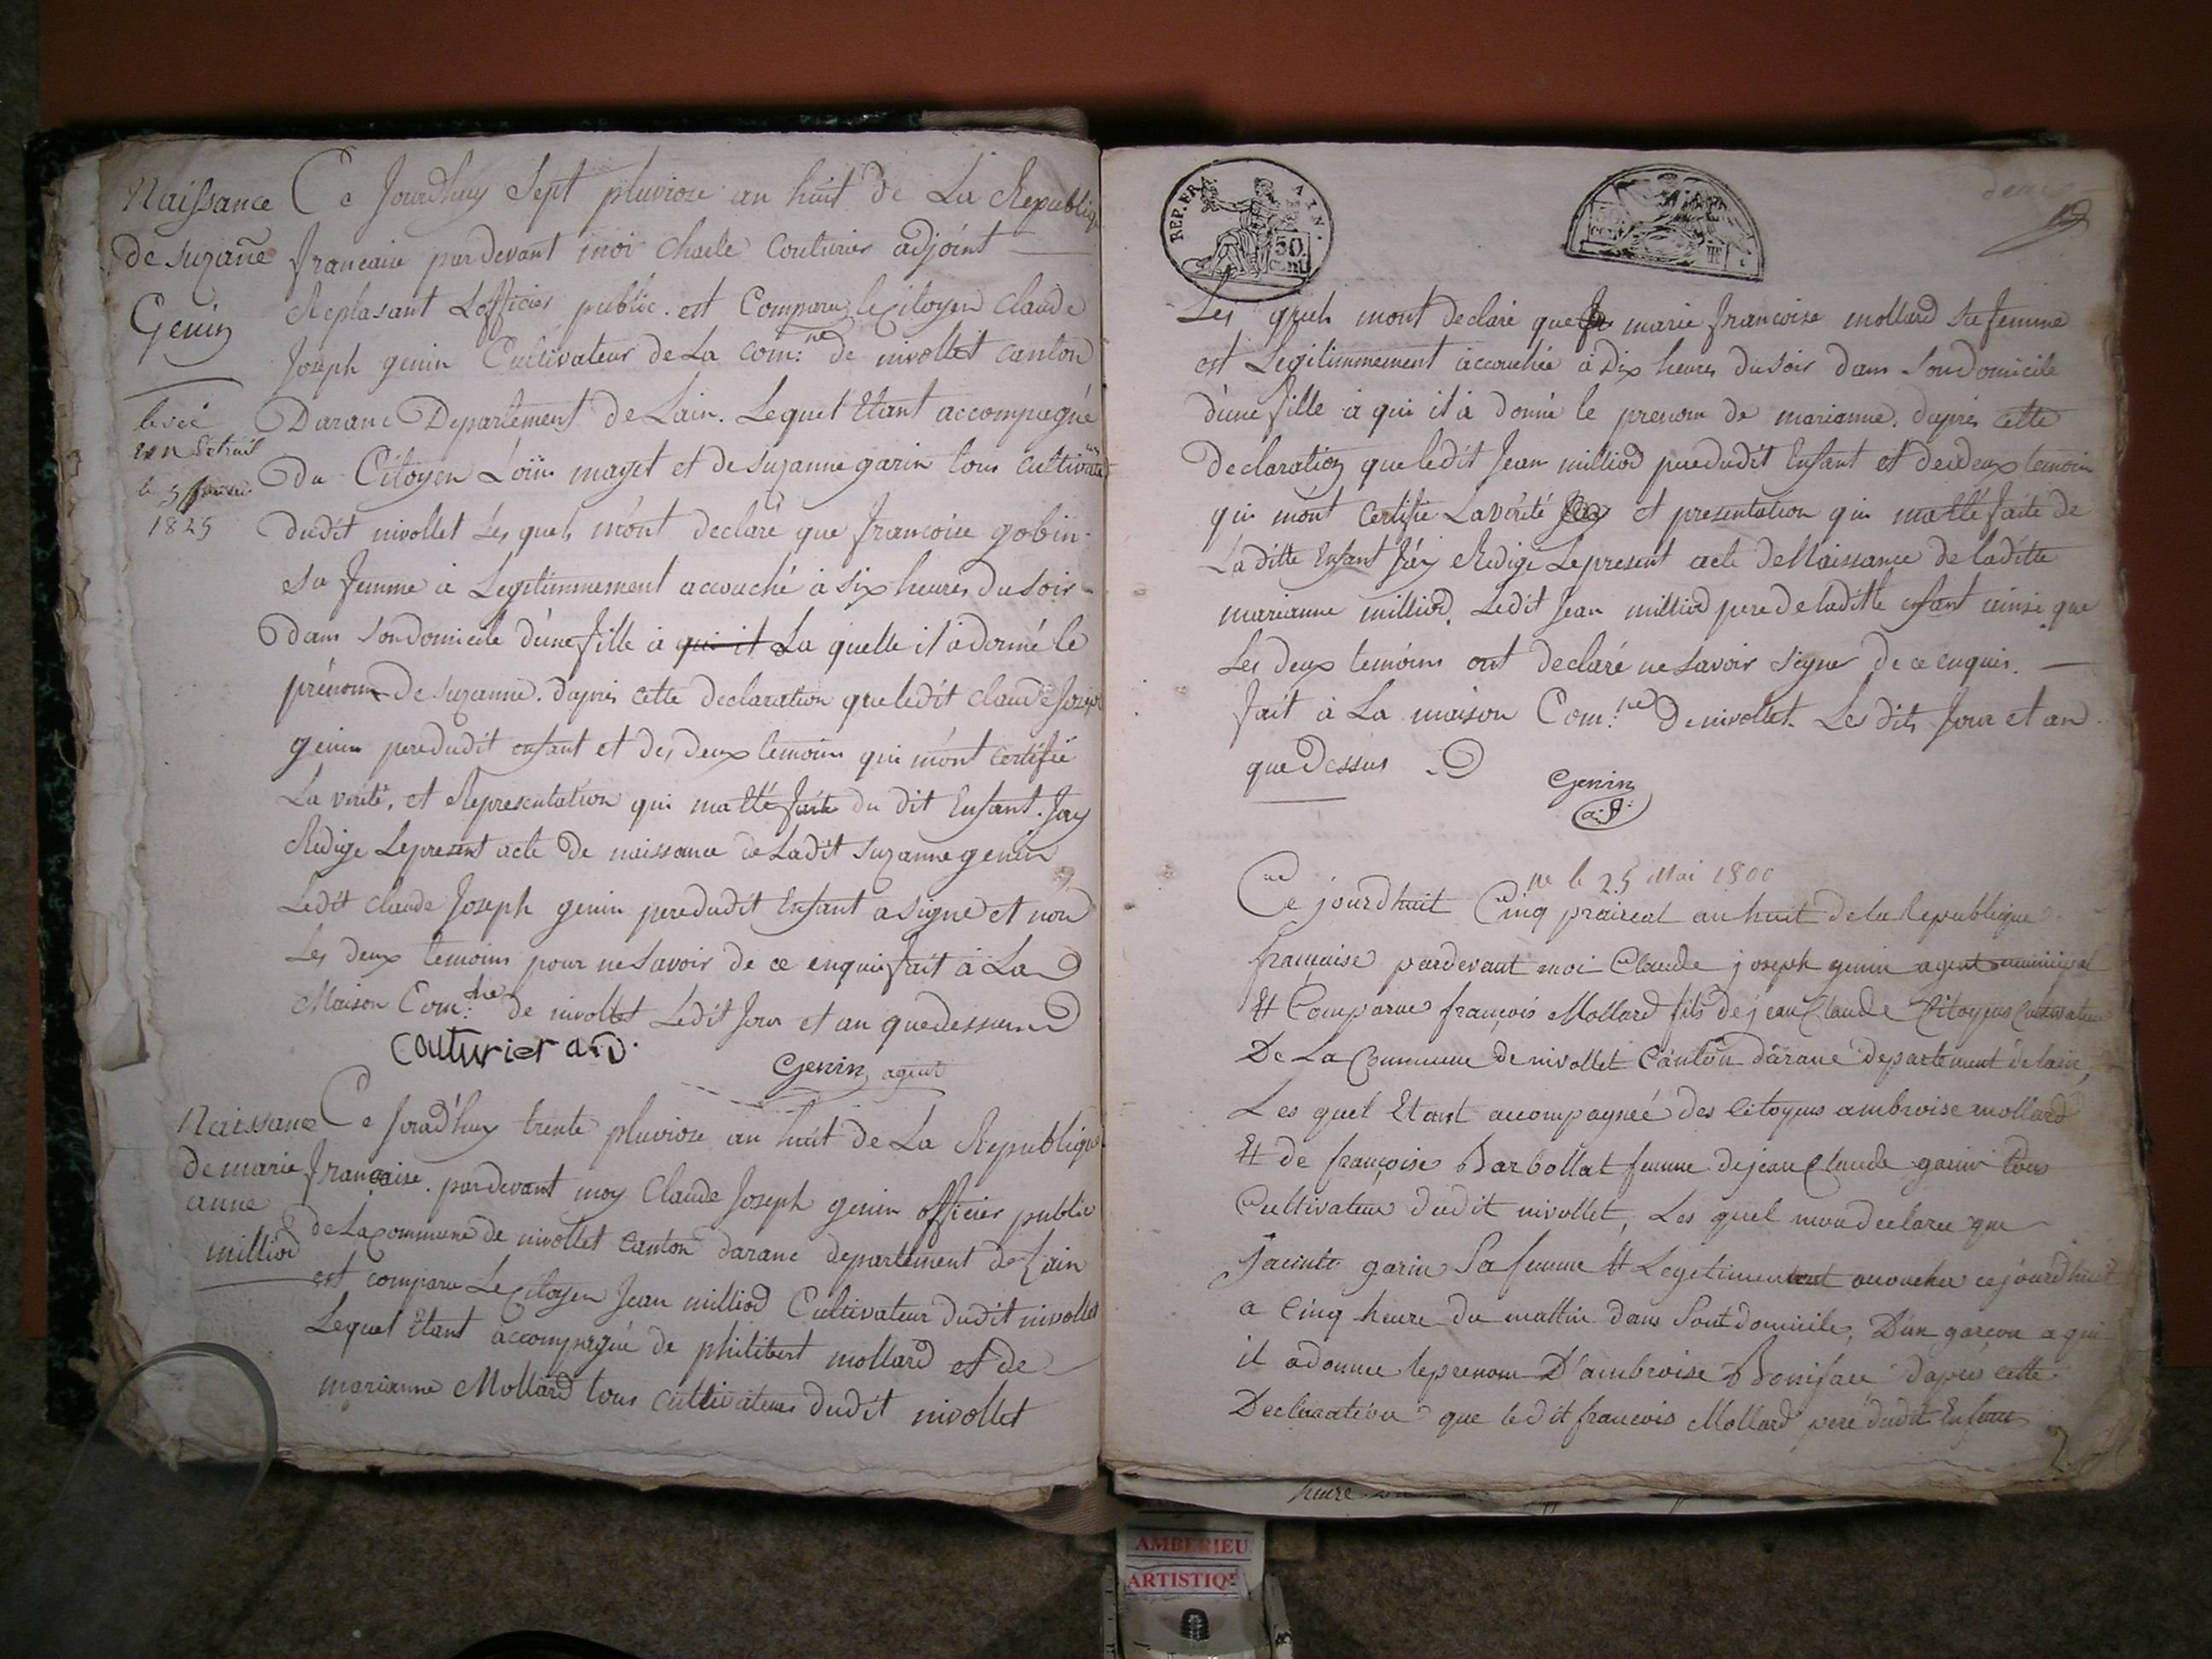 Naissance
de suzañe
Genin
levée
un Extrait
le 5
1825
Ce Jourdhuy Sept pluviose an huit de La Republiq
francaise pardevant moi Charle Couturier adjoint
Replasant Lofficier public. est Comparu le Citoyen Claude
Joseph genin Cultivateur de La com:ne de nivollet canton
Daranc Departement de Lain. Lequel Etant accompagné
Du Citoyen Loüis mayet et de suzanne garin tous cultivate
dudit nivollet Les quels mont declaré que francoise gobin
sa femme à Legitimmement accouché à six heures du soir
Dans son domicile dune fille à qui il La quelle il à donné le
prénom de suzanne. dapris cette declaration que ledit claude Joseph
genin pere dudit enfant et des deux temoins qui mont certifié
La verité, et Representation qui matté faite du dit Enfant. Jay
Redige Le present acte De naissance de Ladit suzanne genin
Ledit claude Joseph genin pere dudit Enfant a signe et non
Les deux temoins pour ne savoir de ce enquis fait à La
Maison Com:ne de nivollet Ledit Jour et an que dessus
Couturier a.D.
Genin agent
Naissance
de marie
anne
milliod
Ce Jourd'huy trente pluviose an huit de La Republique
francaise. pardevant moy Claude Joseph genin officier public
de La Commune de nivollet canton daranc departement de Lain
est comparu Le Citoyen Jean milliod Cultivateur dudit nivollet
Lequel Etant accompagné de philibert mollard et de
marianne Mollard tous cultivateurs dudit nivollet
REP. FRA. AIN.
50.
cent
deux
Les quels mont declaré que marie francoise mollard sa femme
est Legitimmement accouchée à dix heures du soir dans son domicile
d'une fille à qui il à donné le prenom de marianne. dapres cette
Declaration que ledit Jean milliod pere dudit Enfant et des deux temoin
qui mont certifie La vérité et presentation qui matté faite de
La ditte Enfant Jay Redigé Le present acte de Naissance de laditte
marianne milliod, Ledit Jean milliod pere de laditte enfant ainsi que
Les deux temoins ont declaré ne savoir signer de ce enquis.
fait à La maison Com:ne De nivollet Les dits Jour et an
que Dessus
Genin
a.P.
ne le 25 Mai 1800
Ce jourdhuit Cinq praireal an huit de la Republique
française pardevant moi Claude joseph genin agent municipal
Et Comparue françois Mollard fils de jean Claude Citoyens Cultivateur
De La Commune de nivollet Canton dârane departement de lain,
Les quel Etant accompagneé des Citoyens ambroise mollard
Et de françoise Barbollat femme de jean Claude garin tous
Cultivateur dudit nivollet, Les quel mon declaree que
Jacinte garin Sa femme Et Legetimentent acouchee ce jourdhuit
a Cinq heure du mattin dans Sont domicile, D'un garcon a qui
il a donnee le prenom D'ambroise Boniface dapres cette
Declaration que ledit francois Mollard pere dudit Enfant
2
heure
AMBERIEU
ARTISTIQ